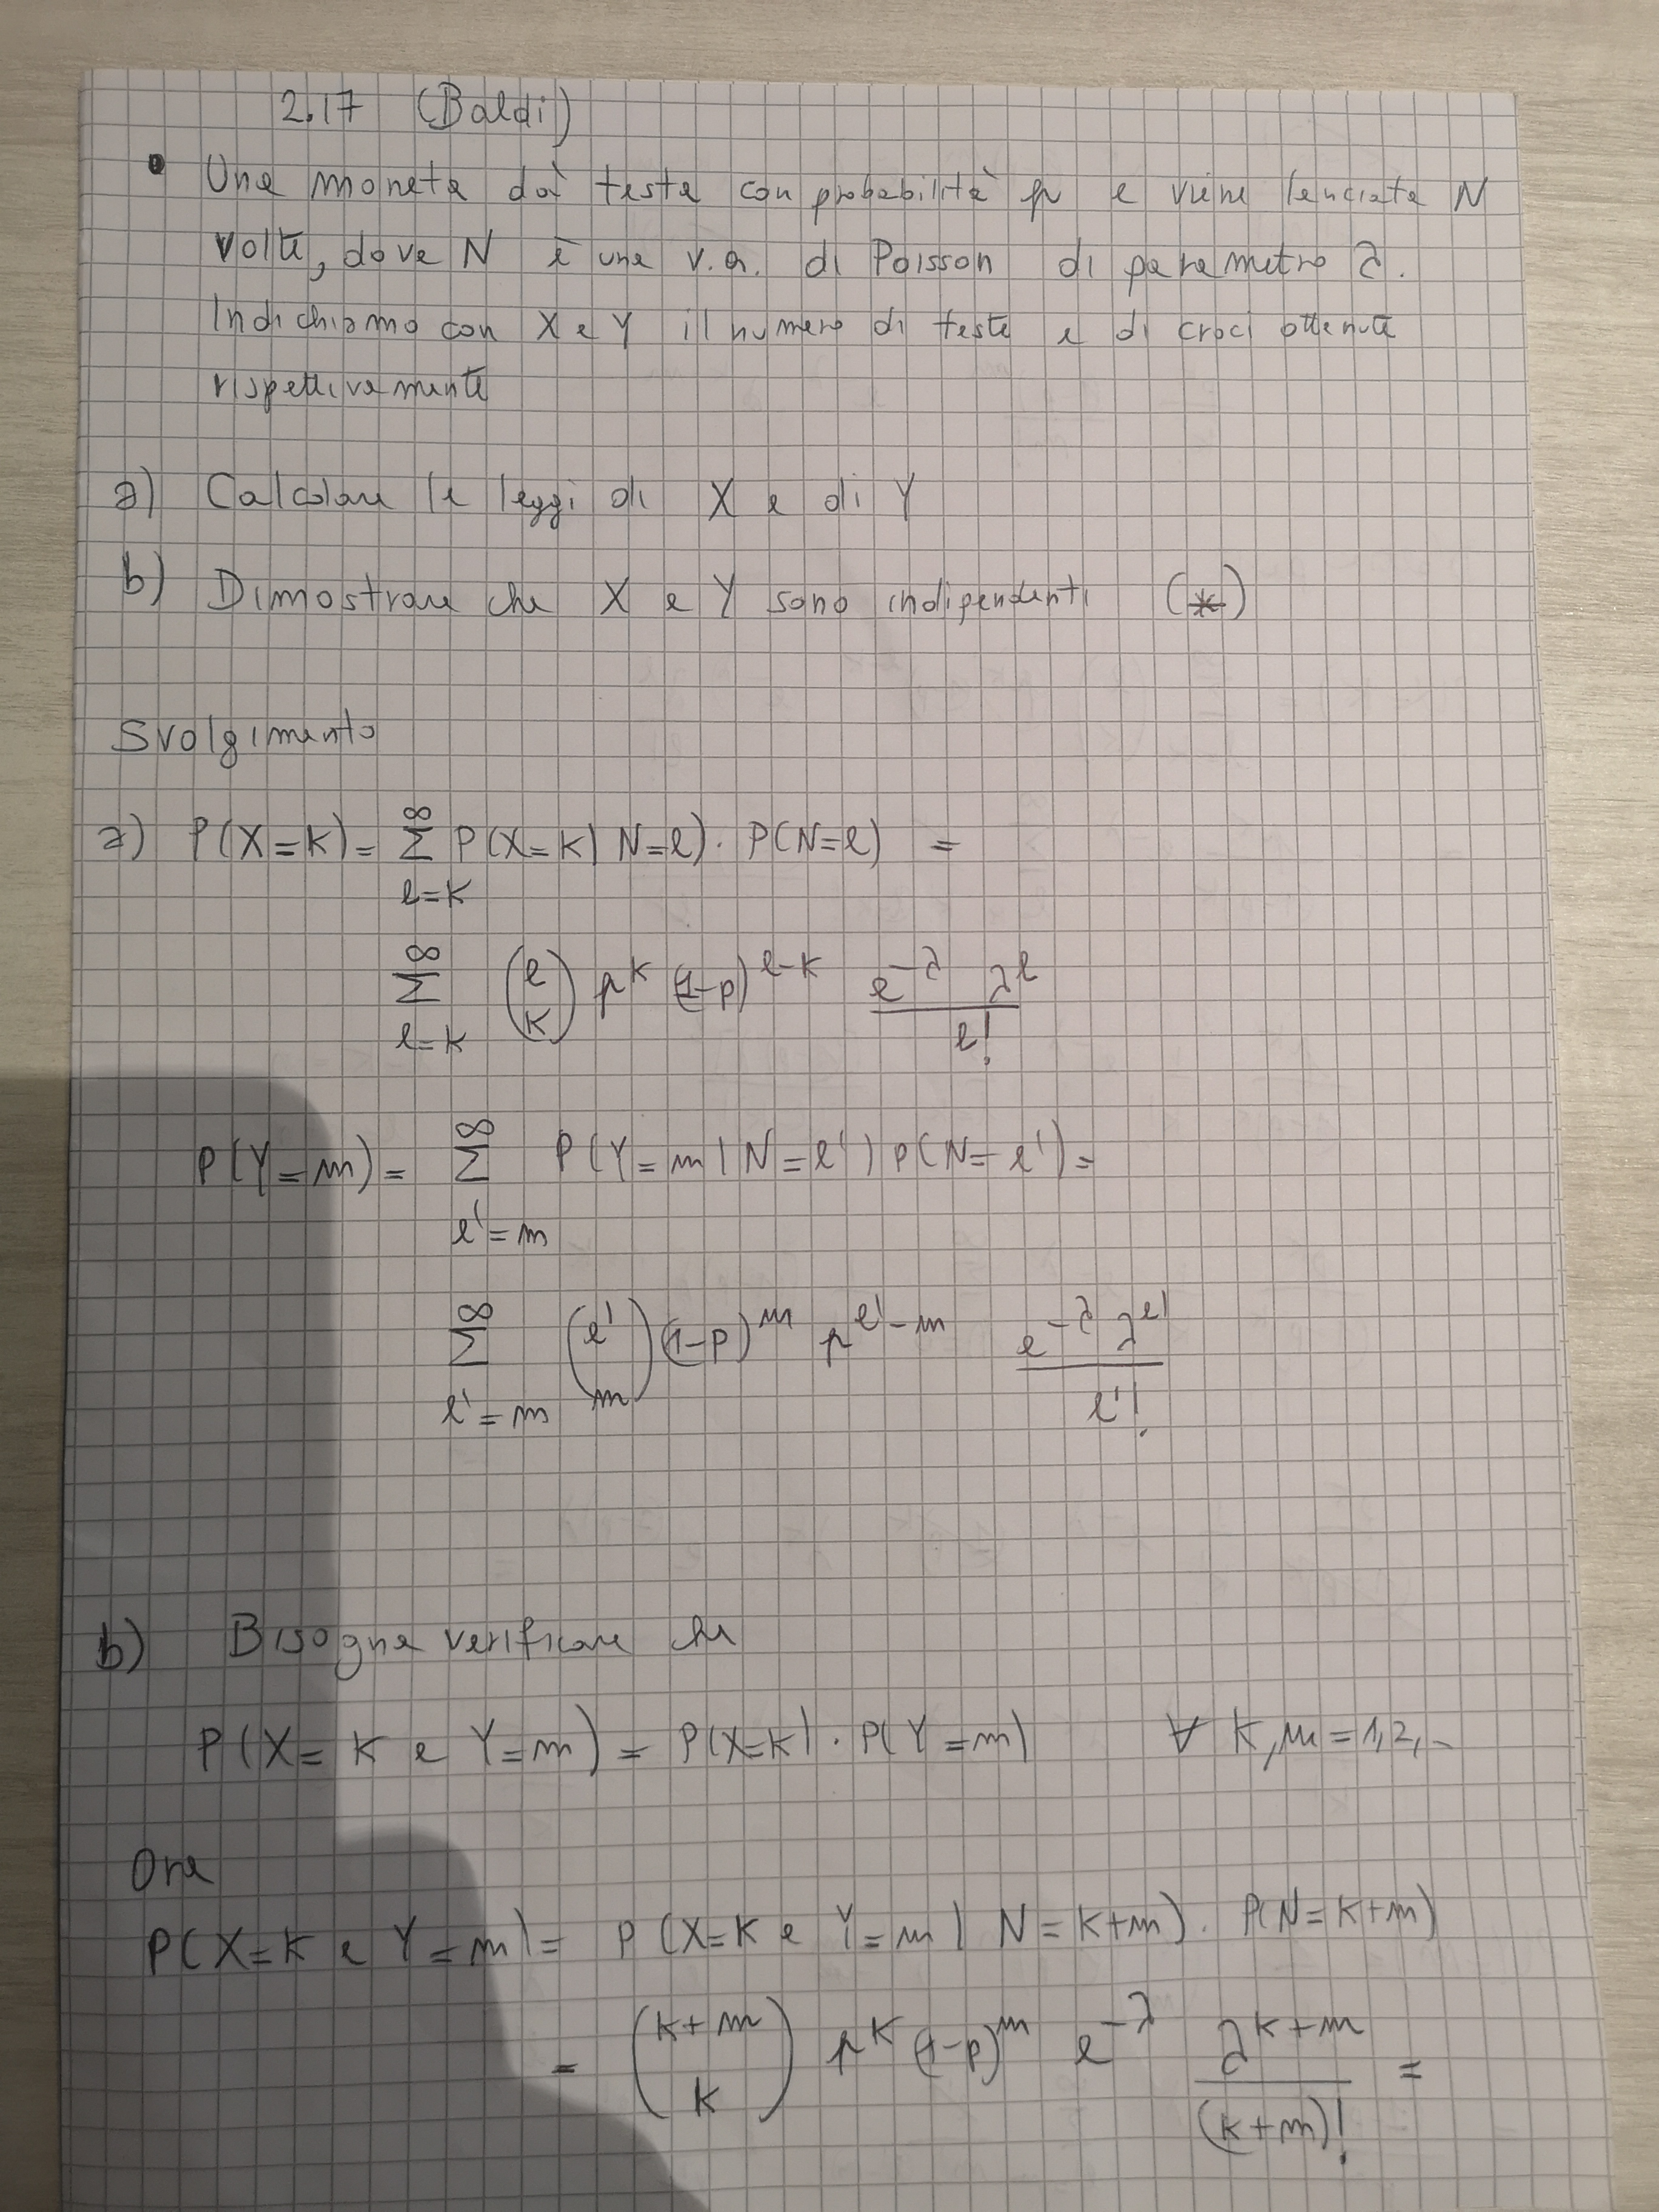 2.17 (Baldi)
• Una moneta dà testa con probabilità p e viene lanciata N
volte, dove N è una v.a. di Poisson di parametro λ.
Indichiamo con X e Y il numero di teste e di croci ottenute
rispettivamente
a) Calcolare le leggi di X e di Y
b) Dimostrare che X e Y sono indipendenti (*)
Svolgimento
a) P(X=k) = Σ_{l=k}^{∞} P(X=k | N=l) · P(N=l) =
Σ_{l=k}^{∞} (l k) p^k (1-p)^{l-k} e^{-λ} λ^l / l!
P(Y=m) = Σ_{l'=m}^{∞} P(Y=m | N=l') P(N=l') =
Σ_{l'=m}^{∞} (l' m) (1-p)^m p^{l'-m} e^{-λ} λ^{l'} / l'!
b) Bisogna verificare che
P(X=k e Y=m) = P(X=k) · P(Y=m) ∀ k, m = 1, 2, ..
Ora
P(X=k e Y=m) = P(X=k e Y=m | N=k+m) · P(N=k+m)
= (k+m k) p^k (1-p)^m e^{-λ} λ^{k+m} / (k+m)! =